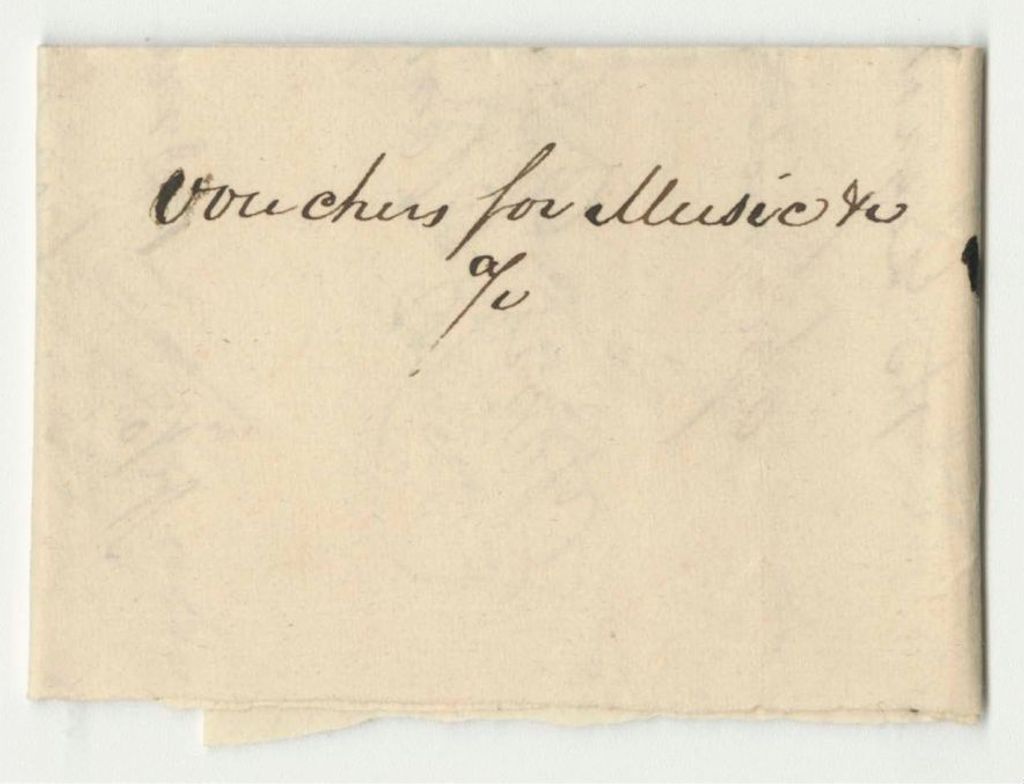 Vouchers for Music &c
a/c